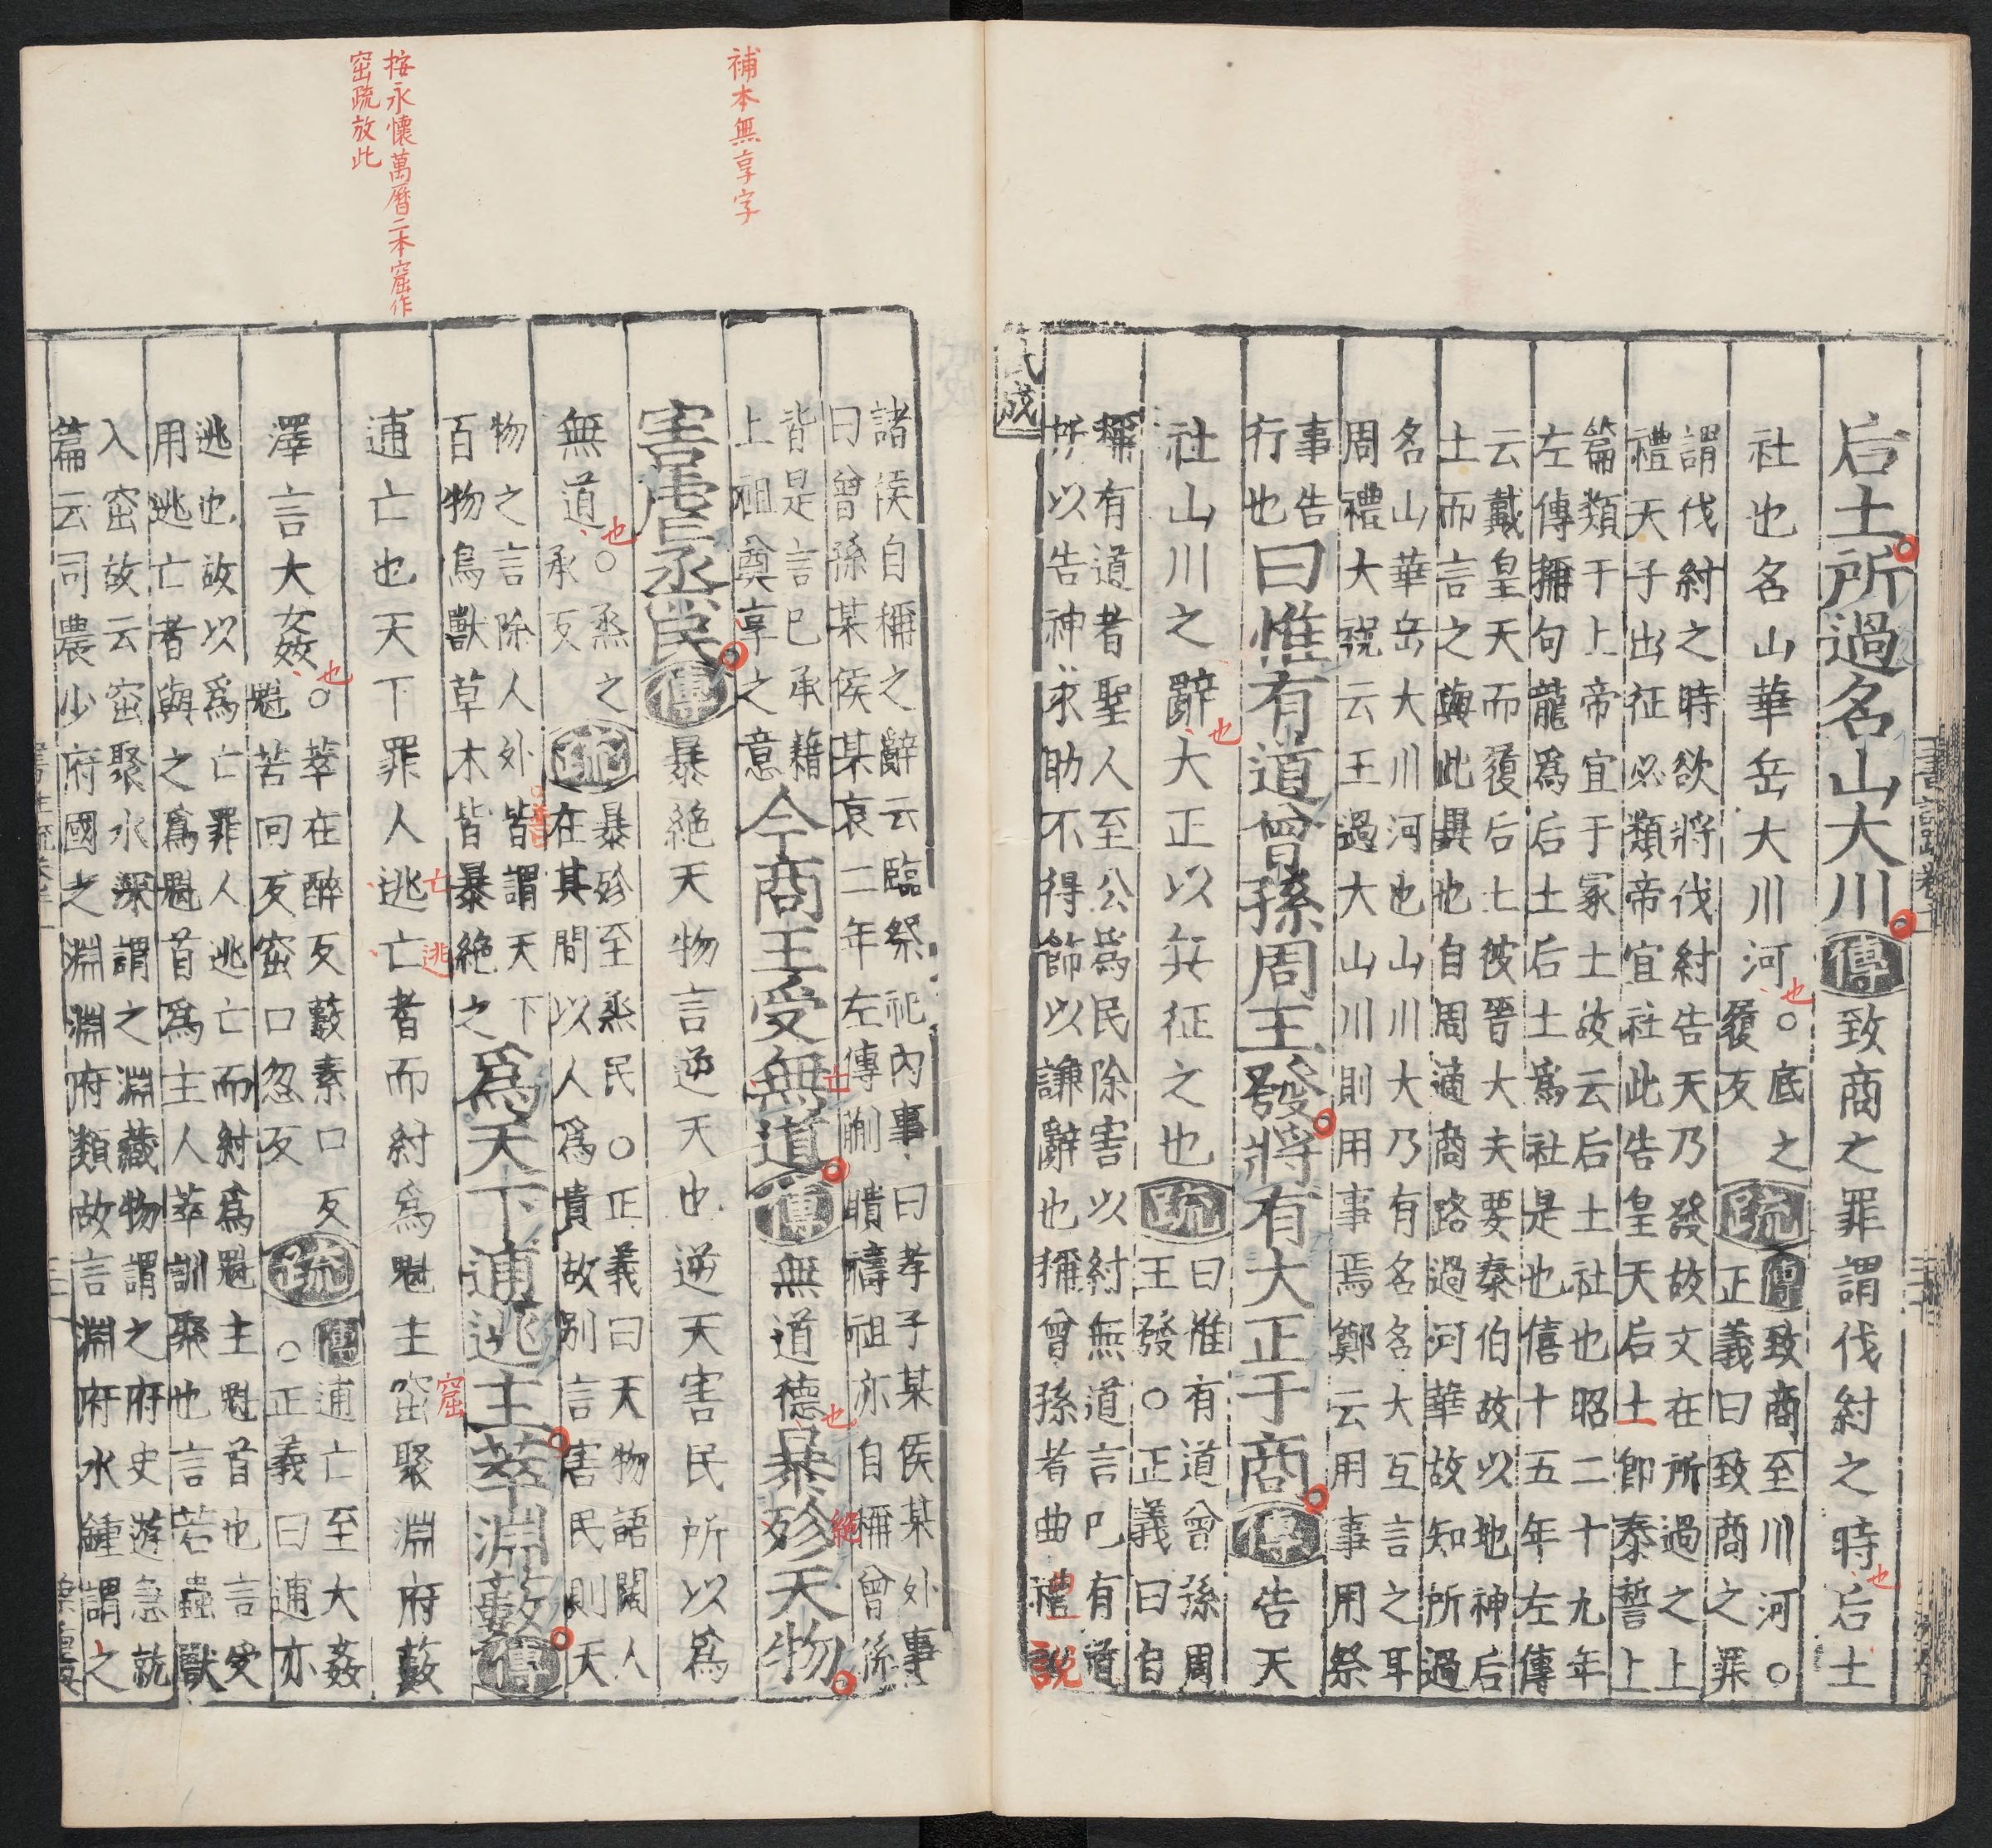 后土所過名山大川傳致商之罪謂伐紂之時也后土
社也名山華岳大川河也○底之
履反
疏傳致商至川河○
正義曰致商之罪
謂伐紂之時欲將伐紂告天乃發故文在所過之上
禮天子出征必類帝宜社此告皇天后土即泰誓上
篇類于上帝宜于冢土故云后土社也昭二十九年
左傳稱句龍爲后土后土爲社是也僖十五年左傳
云戴皇天而履后土彼晉大夫要秦伯故以地神后
土而言之與此異也自周適商路過河華故知所過
名山華岳大川河也山川大乃有名名大互言之耳
周禮大祝云王過大山川則用事焉鄭云用事用祭
事告
行也
曰惟有道曾孫周王發將有大正于商傳告天
社山川之辭也大正以兵征之也疏
曰惟有道曾孫周
王發○正義曰自
稱有道者聖人至公爲民除害以紂無道言己有道
所以告神求助不得飾以謙辭也稱曾孫者曲禮說
武成
補本無享字
諸侯自稱之辭云臨祭祀內事曰孝子某侯某外事
曰曾孫某侯某哀二年左傳蒯聵禱祖亦自稱曾孫
皆是言己承藉
上祖奠享之意
今商王受無道傳無道德也暴殄天物
亡
絶
害虐烝民傳暴絶天物言逆天也逆天害民所以爲
無道也○烝之
承反
疏
暴殄至烝民○正義曰天物語闊人
在其間以人爲貴故別言害民則天
物之言除人外皆謂天下
百物鳥獸草木皆暴絶之
爲天下逋逃主萃淵藪傳
按永懷萬曆二本窟作
窋疏放此
逋亡也天下罪人逃亡者而紂爲魁主窋聚淵府藪
亡逃
窟
澤言大姦也○萃在醉反藪素口反
魁苦回反窋口忽反
疏
傳逋亡至大姦
○正義曰逋亦
逃也故以爲亡罪人逃亡而紂爲魁主魁首也言受
用逃亡者與之爲魁首爲主人萃訓聚也言若蟲獸
入窋故云窋聚水深謂之淵藏物謂之府史游急就
篇云司農少府國之淵淵府類故言淵府水鍾謂之